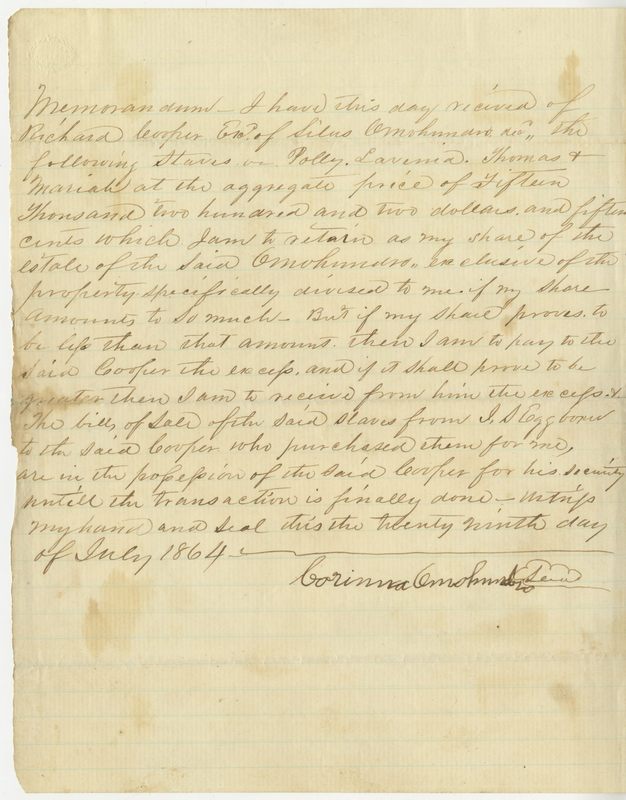 Memorandum – I have this day recived of
Richard Cooper Exr. of Silas Omohundro decd,, the
following Slaves viz Polly, Lavinia. Thomas &
Mariah at the aggregate price of Fifteen
Thousand two hundred and two dollars. and fifteen
cents which I am to retain as my share of the
estate of the said Omohundro,, exclusive of the
property specifically devised to me. if my share
amounts to so much – But if my share proves. to
be less than that amount. then I am to pay to the
said Cooper the excess. and if it shall prove to be
greater then I am to recieve from him the excess. &
The bills of Sale of the said slaves from
to the said Cooper who purchased them for me,
are in the possession of the said Cooper for his security
untill the transaction is finally done – Witness
my hand and seal this the twenty ninth day
of July 1864 –
Corinna Omohundro Seal